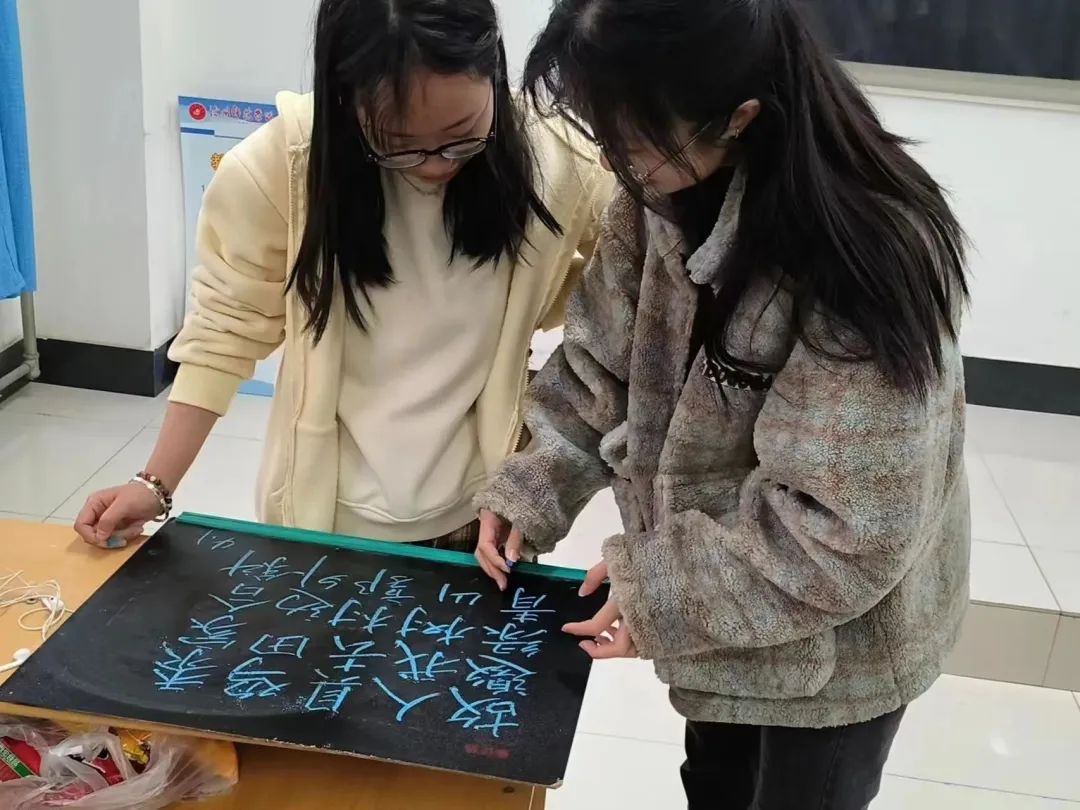 故人具鸡黍
邀我至田家
绿树村边合
青山郭外斜